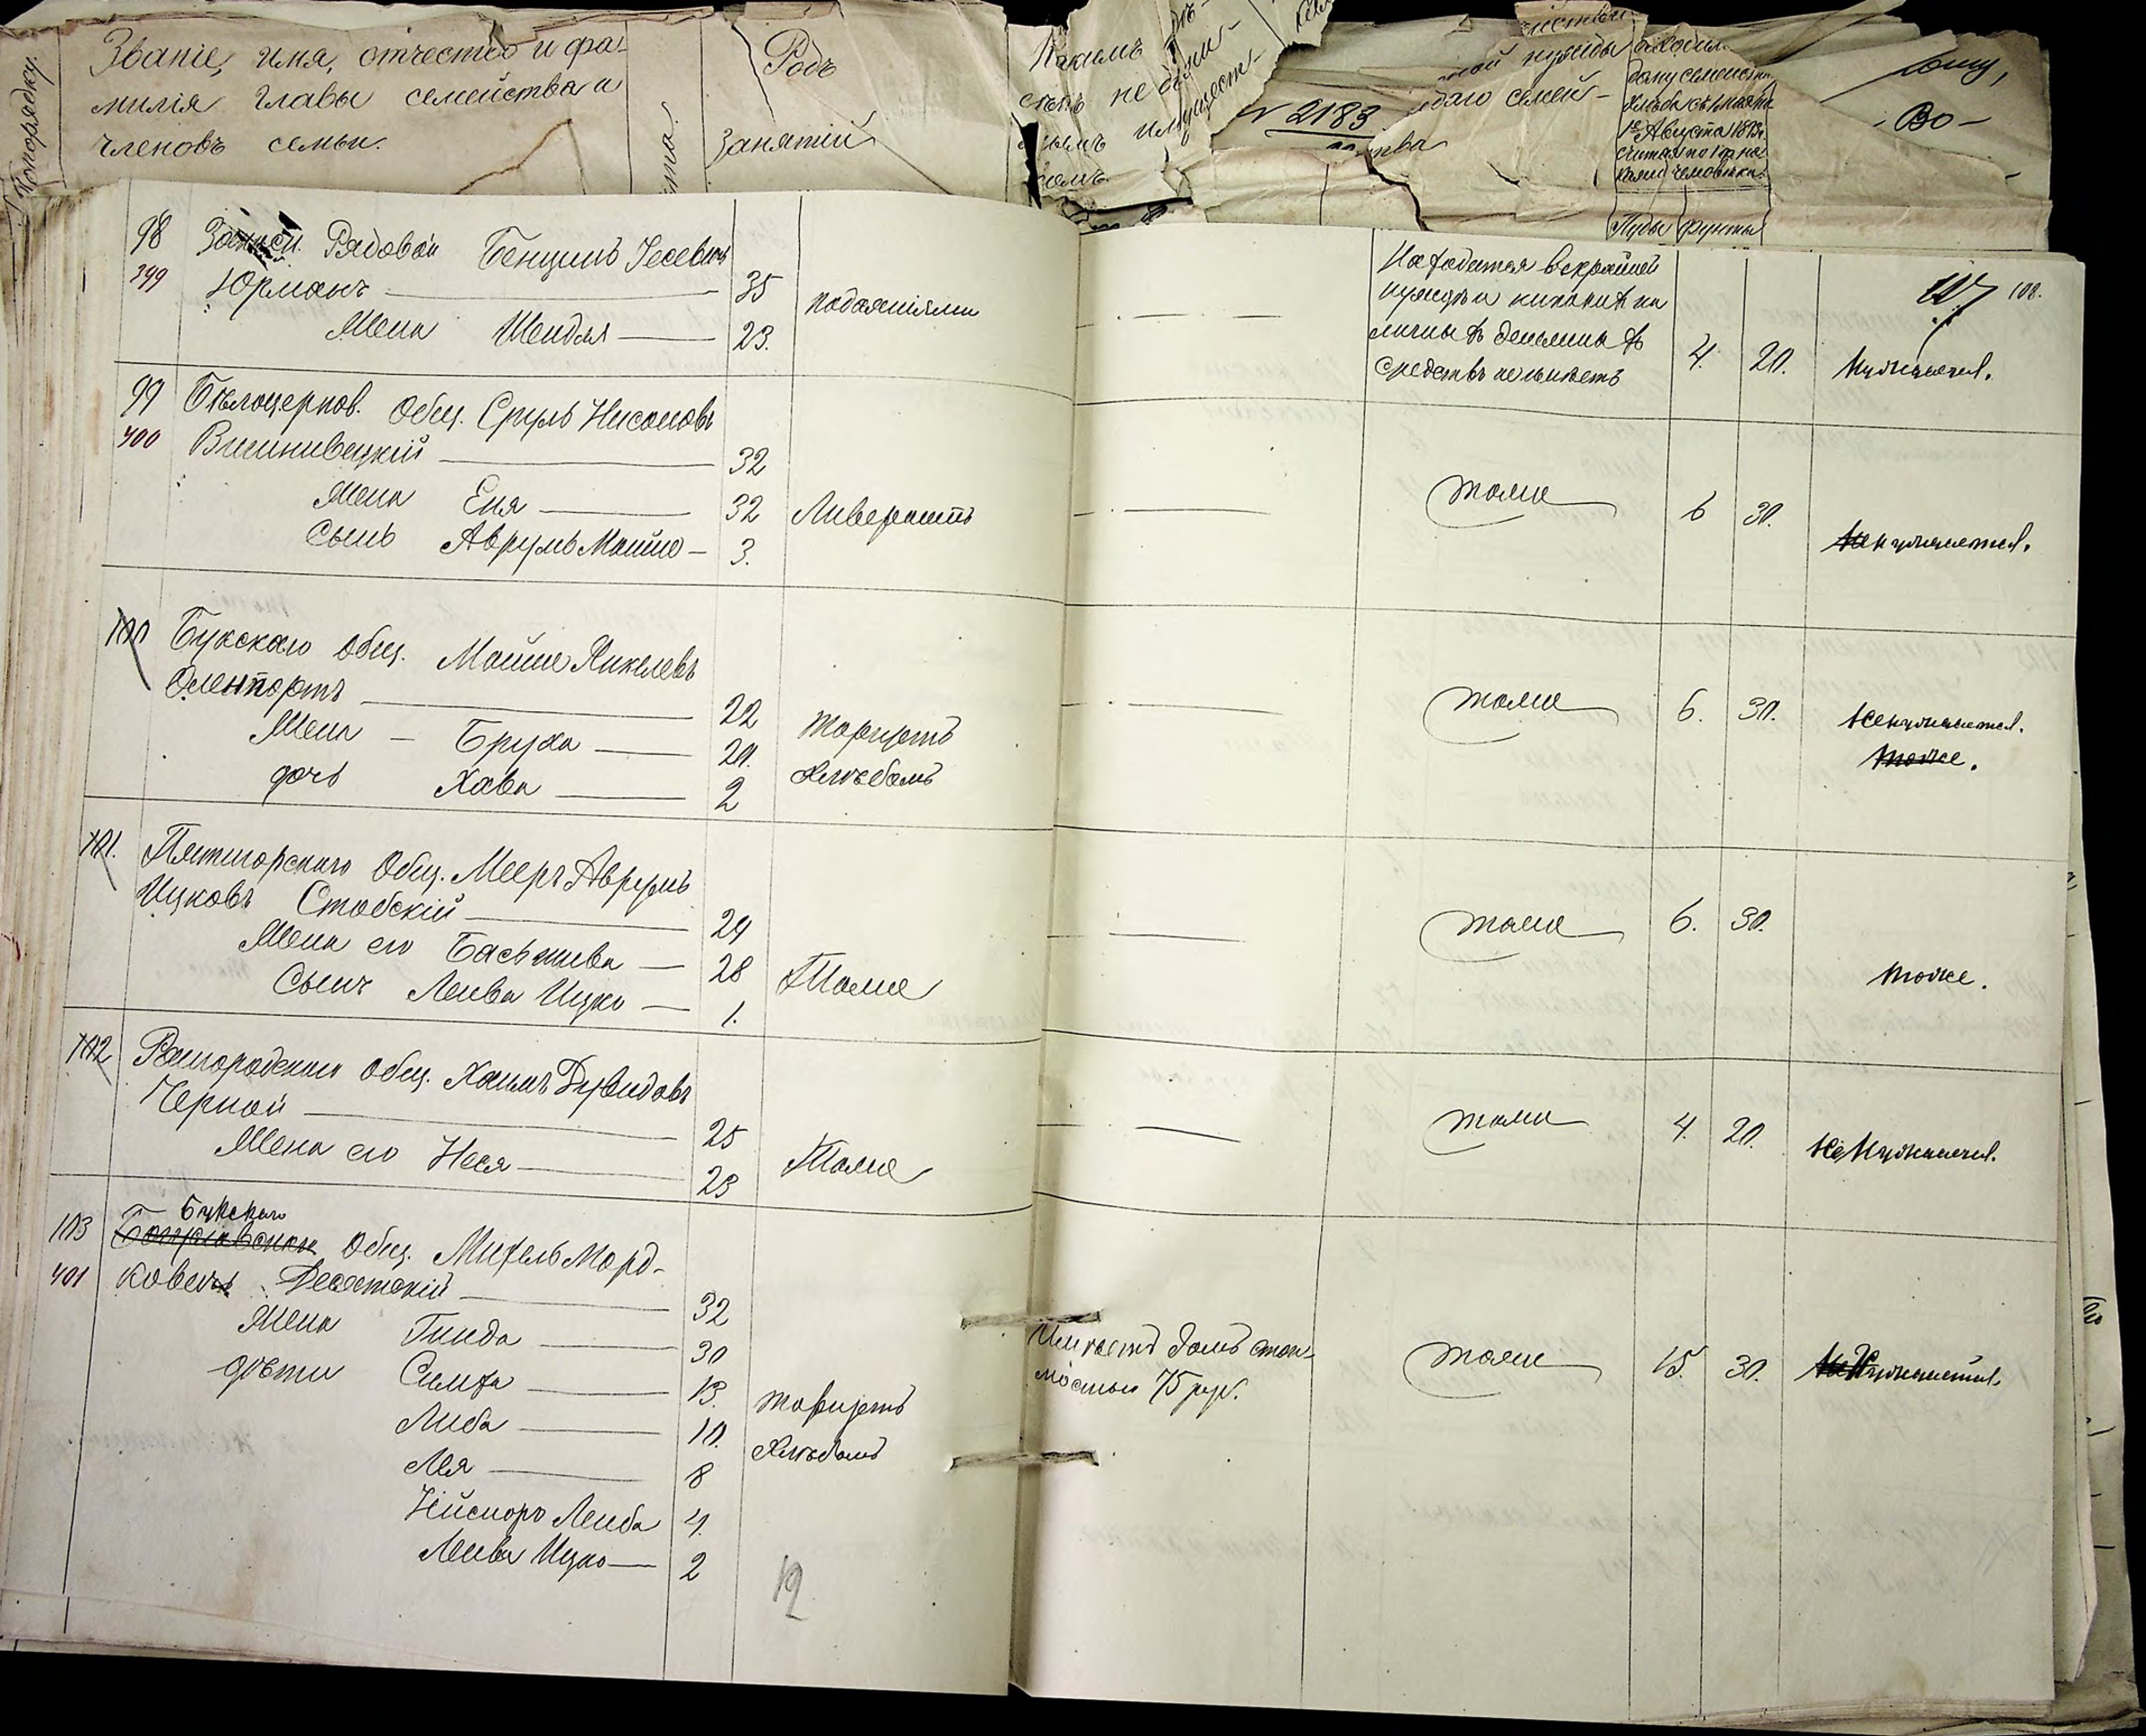 По порядку.
Званіе, имя, отчество и фа-
милія главы семейства и
членовъ семьи.
Родъ
занятій
Какимъ
не движи-
мымъ имущест-
вомъ
№ 2183
нужды
семей-
ства
дому семейства
хлѣба съ
1е Августа
считая по 1 п. на
человѣка
Пуды фунты
кому,
- Во -
98 Запасн. Рядовой Бенціонъ Іосевъ
399 Юрманъ 35
Жена Шендля 23.
подаяніями
Находится в крайней
нуждѣ и никакихъ на
личныхъ денежныхъ
средствъ не имѣетъ
4. 20.
107 108.
Нуждается.
99 Бѣлоцерков. Общ. Сруль Нисоновъ
400 Вишнивецкій 32
Жена Еня 32
Сынъ Аврумъ Мойше - 3.
Ливерантъ
тоже
6 30.
Не нуждается.
100 Букскаго Общ. Мойше Янкелевъ
Олентортъ 22
Жена - Бруха 20.
дочь Хава 2
торгуетъ
хлѣбомъ
тоже
6. 30.
Не нуждается.
тоже.
101. Пятигорскаго Общ. Мееръ Аврумъ
Ицковъ Ставскій 29
Жена его Бась шева 28
Сынъ Лейба Ицко 1.
Тоже
тоже
6. 30.
тоже.
102 Рашгородскаго Общ. Хаимъ Дувидовъ
Черной 25
Жена его Нося 23
Тоже
тоже
4. 20.
Не Нуждается.
Букскаго
103 Богуславскаго Общ. Михель Морд-
401 ковичъ Десятскій 32
Жена Гинда 30
дѣти Симха 13.
Либа 10.
Лея 8
Лейба 4.
Лейба Ицко 2
торгуетъ
хлѣбомъ
Имѣетъ домъ стои-
мостью 75 руб.
тоже
15. 30.
Не Нуждается.
12